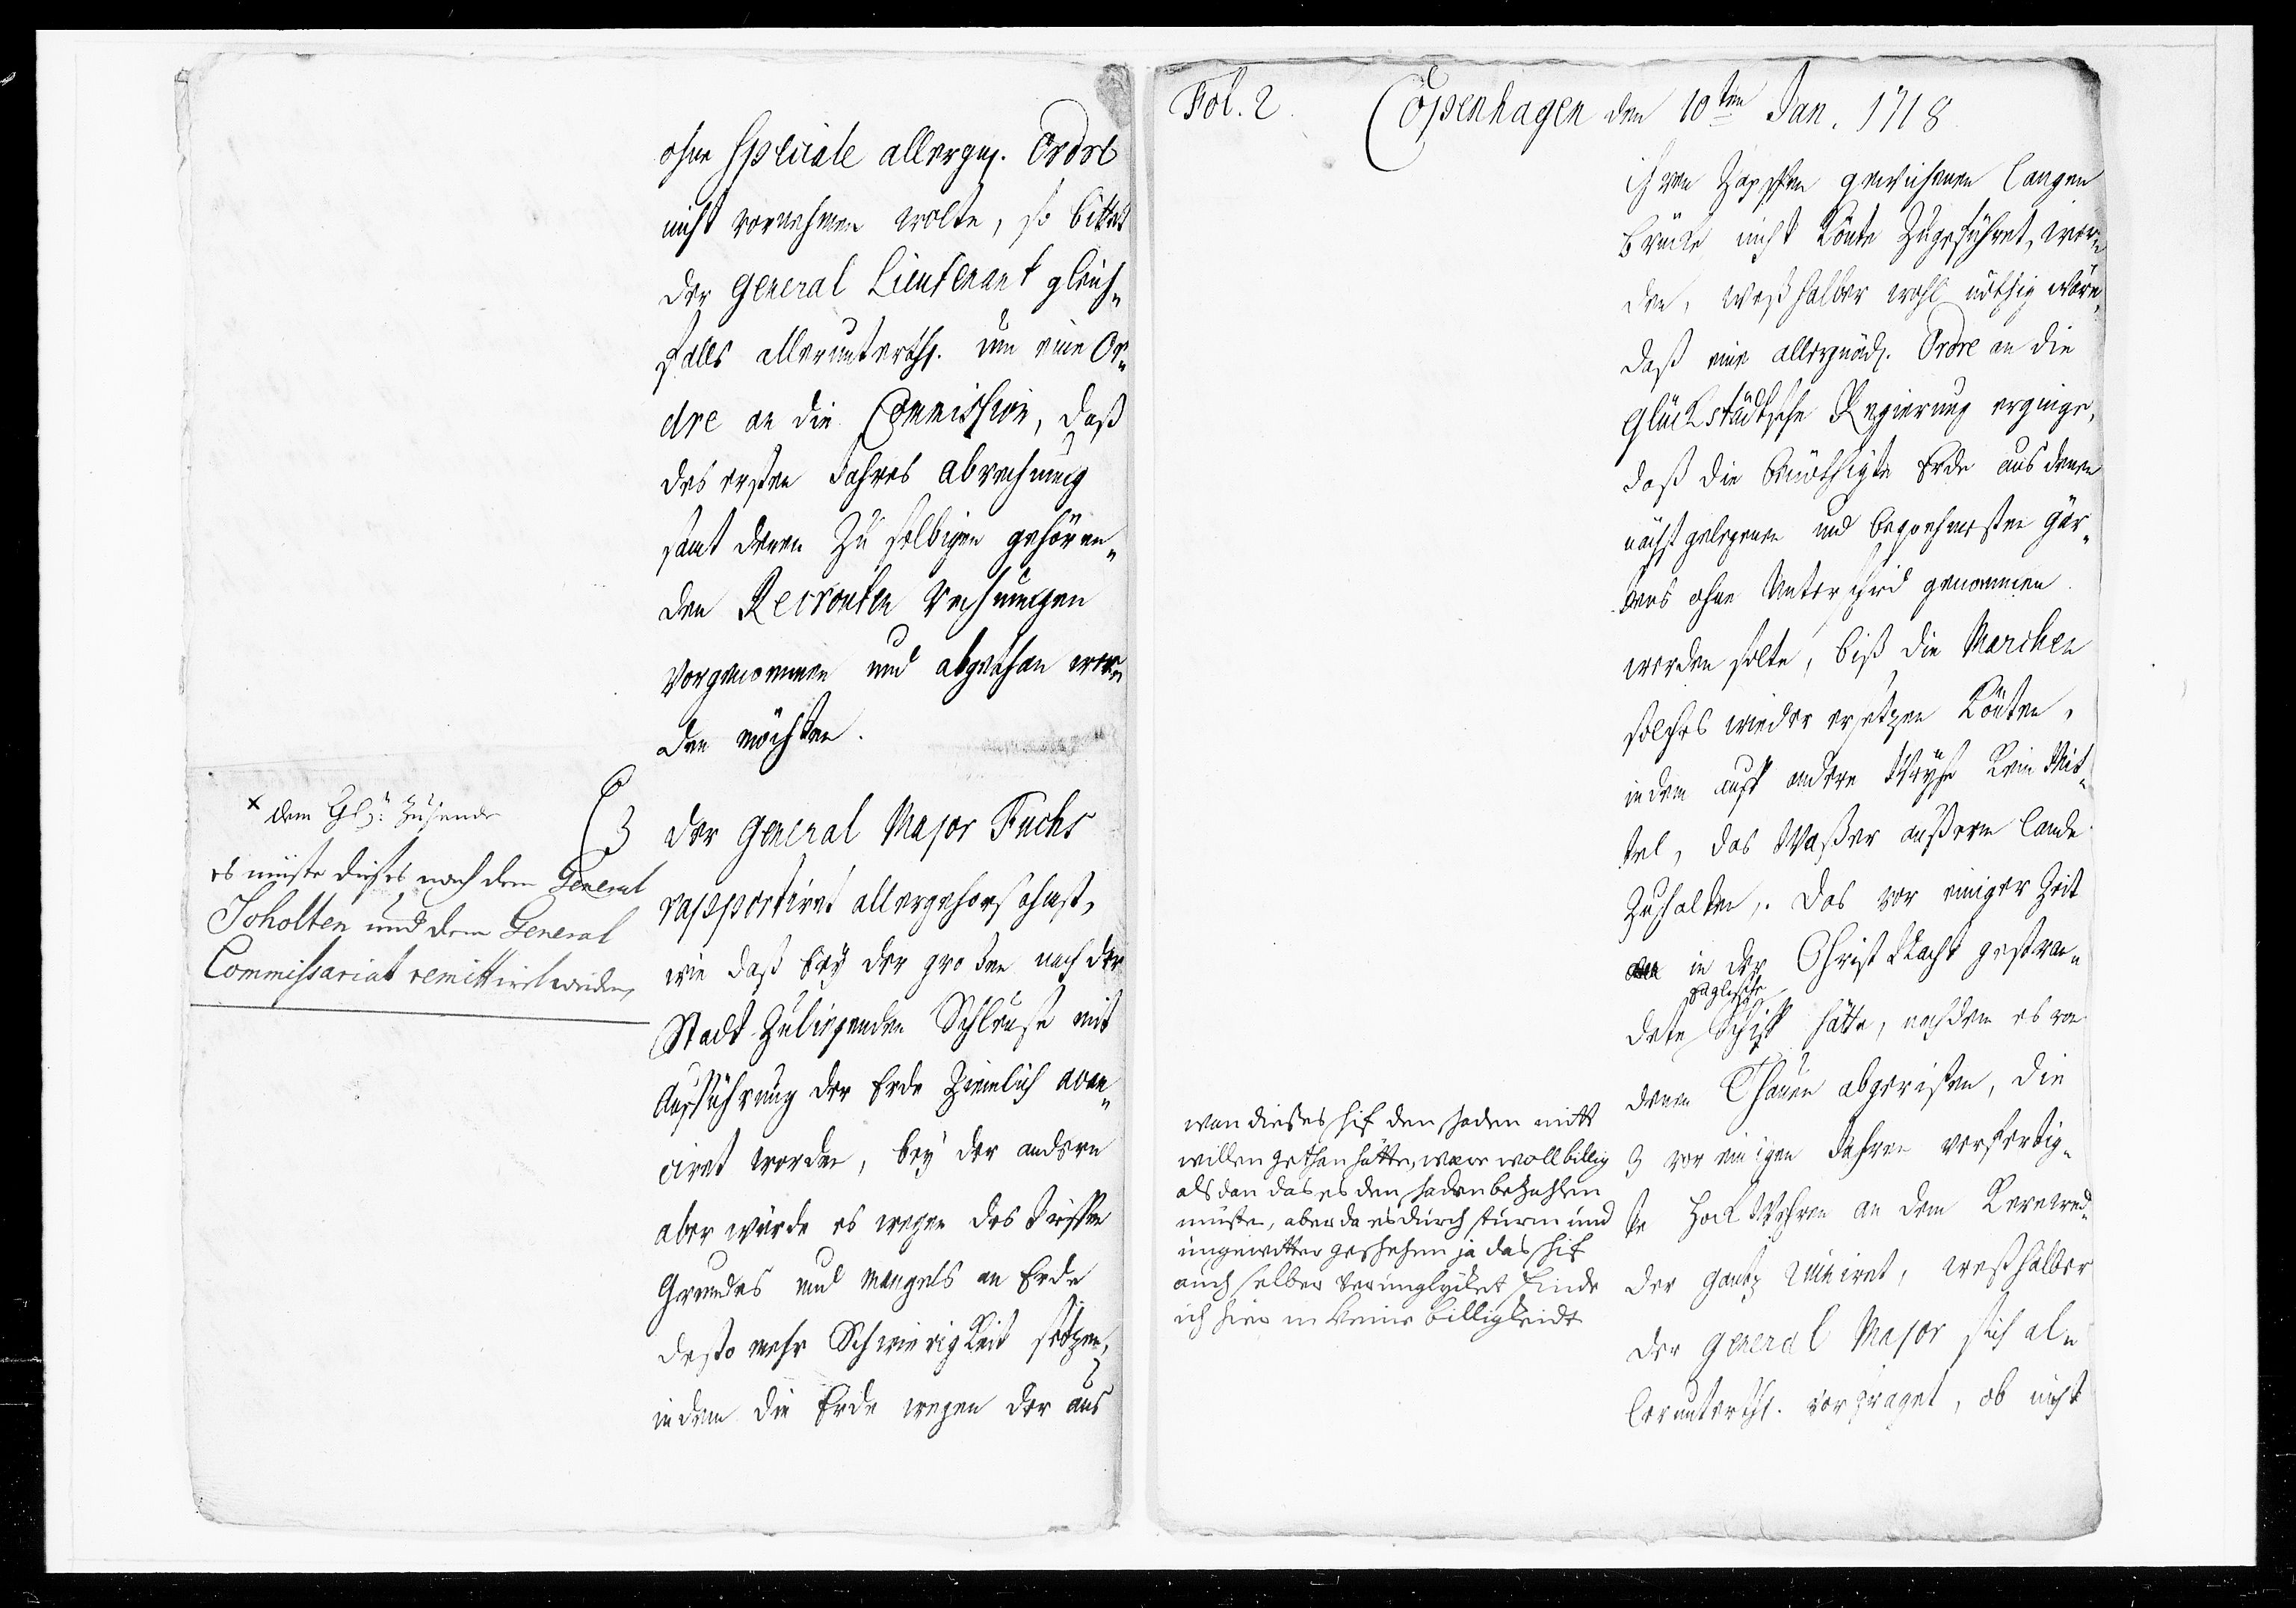 ohne Speciale allergn. Ordre
nicht vornehmen wolte, so bittet
der General Lieutenant gleich„
falls allerunterth. um eine Or„
dre an die Commission, daß
des ersten Jahres Abrechnung
samt denen zu selbigen gehören„
den Recrouten Rechnungen
vorgenommen und abgethan wer„
den möchten.
x dem Zusende
es müste dieses nach dem General
Scholten und dem General
Commissariat remittirt werden,
3 der General Major Fuchs
rapportiret allergehorsahmst,
wie daß bey der großen nach der
Stadt zuliegenden Schleuse mit
Ausführung der Erde ziemlich avan„
ciret worden, bey der andern
aber würde es wegen des tieffen
Grundes und Mangels an Erde
desto mehr Schwierigkeit setzen,
indem die Erde wegen der aus
Fol. 2. Copenhagen den 10ten Jan. 1718
ihren Zapffen gewichenen langen
Brücke nicht könte zugeführet, wer„
den, weßhalber wohl nöthig wäre,
daß eine allergnäd. Ordre an die
Glückstädtsche Regierung erginge,
daß die benöthigte Erde aus denen
nächst gelegenen und beqvehmsten Gär„
tens ohne Unterschied genommen
werden solte, biß die Marchen
solches wieder ersetzen könten,
indem auff andere Weyse kein Mit„
tel, das Waßer außerm Lande
zuhalten,. Das vor einiger Zeit
in der Christ Nacht gestran„
dete Englische Schiff hätte, nachdem es von
denen Thauen abgerißen, die
3 vor einigen Jahren verfertig„
te Hock Wehren an dem
der gantz ruiniret, weßhalber
der General Major sich al„
lerunterth. vorfraget, ob nicht
wan dieses shif den shaden mitt
willen gethan hätte, were woll billig
als dan das es den shaden bezahlen
müste, aber da es durch sturm und
ungewitter geshehen ja das shif
auch selber verunglücket finde
ich hier in keine billigkeidt